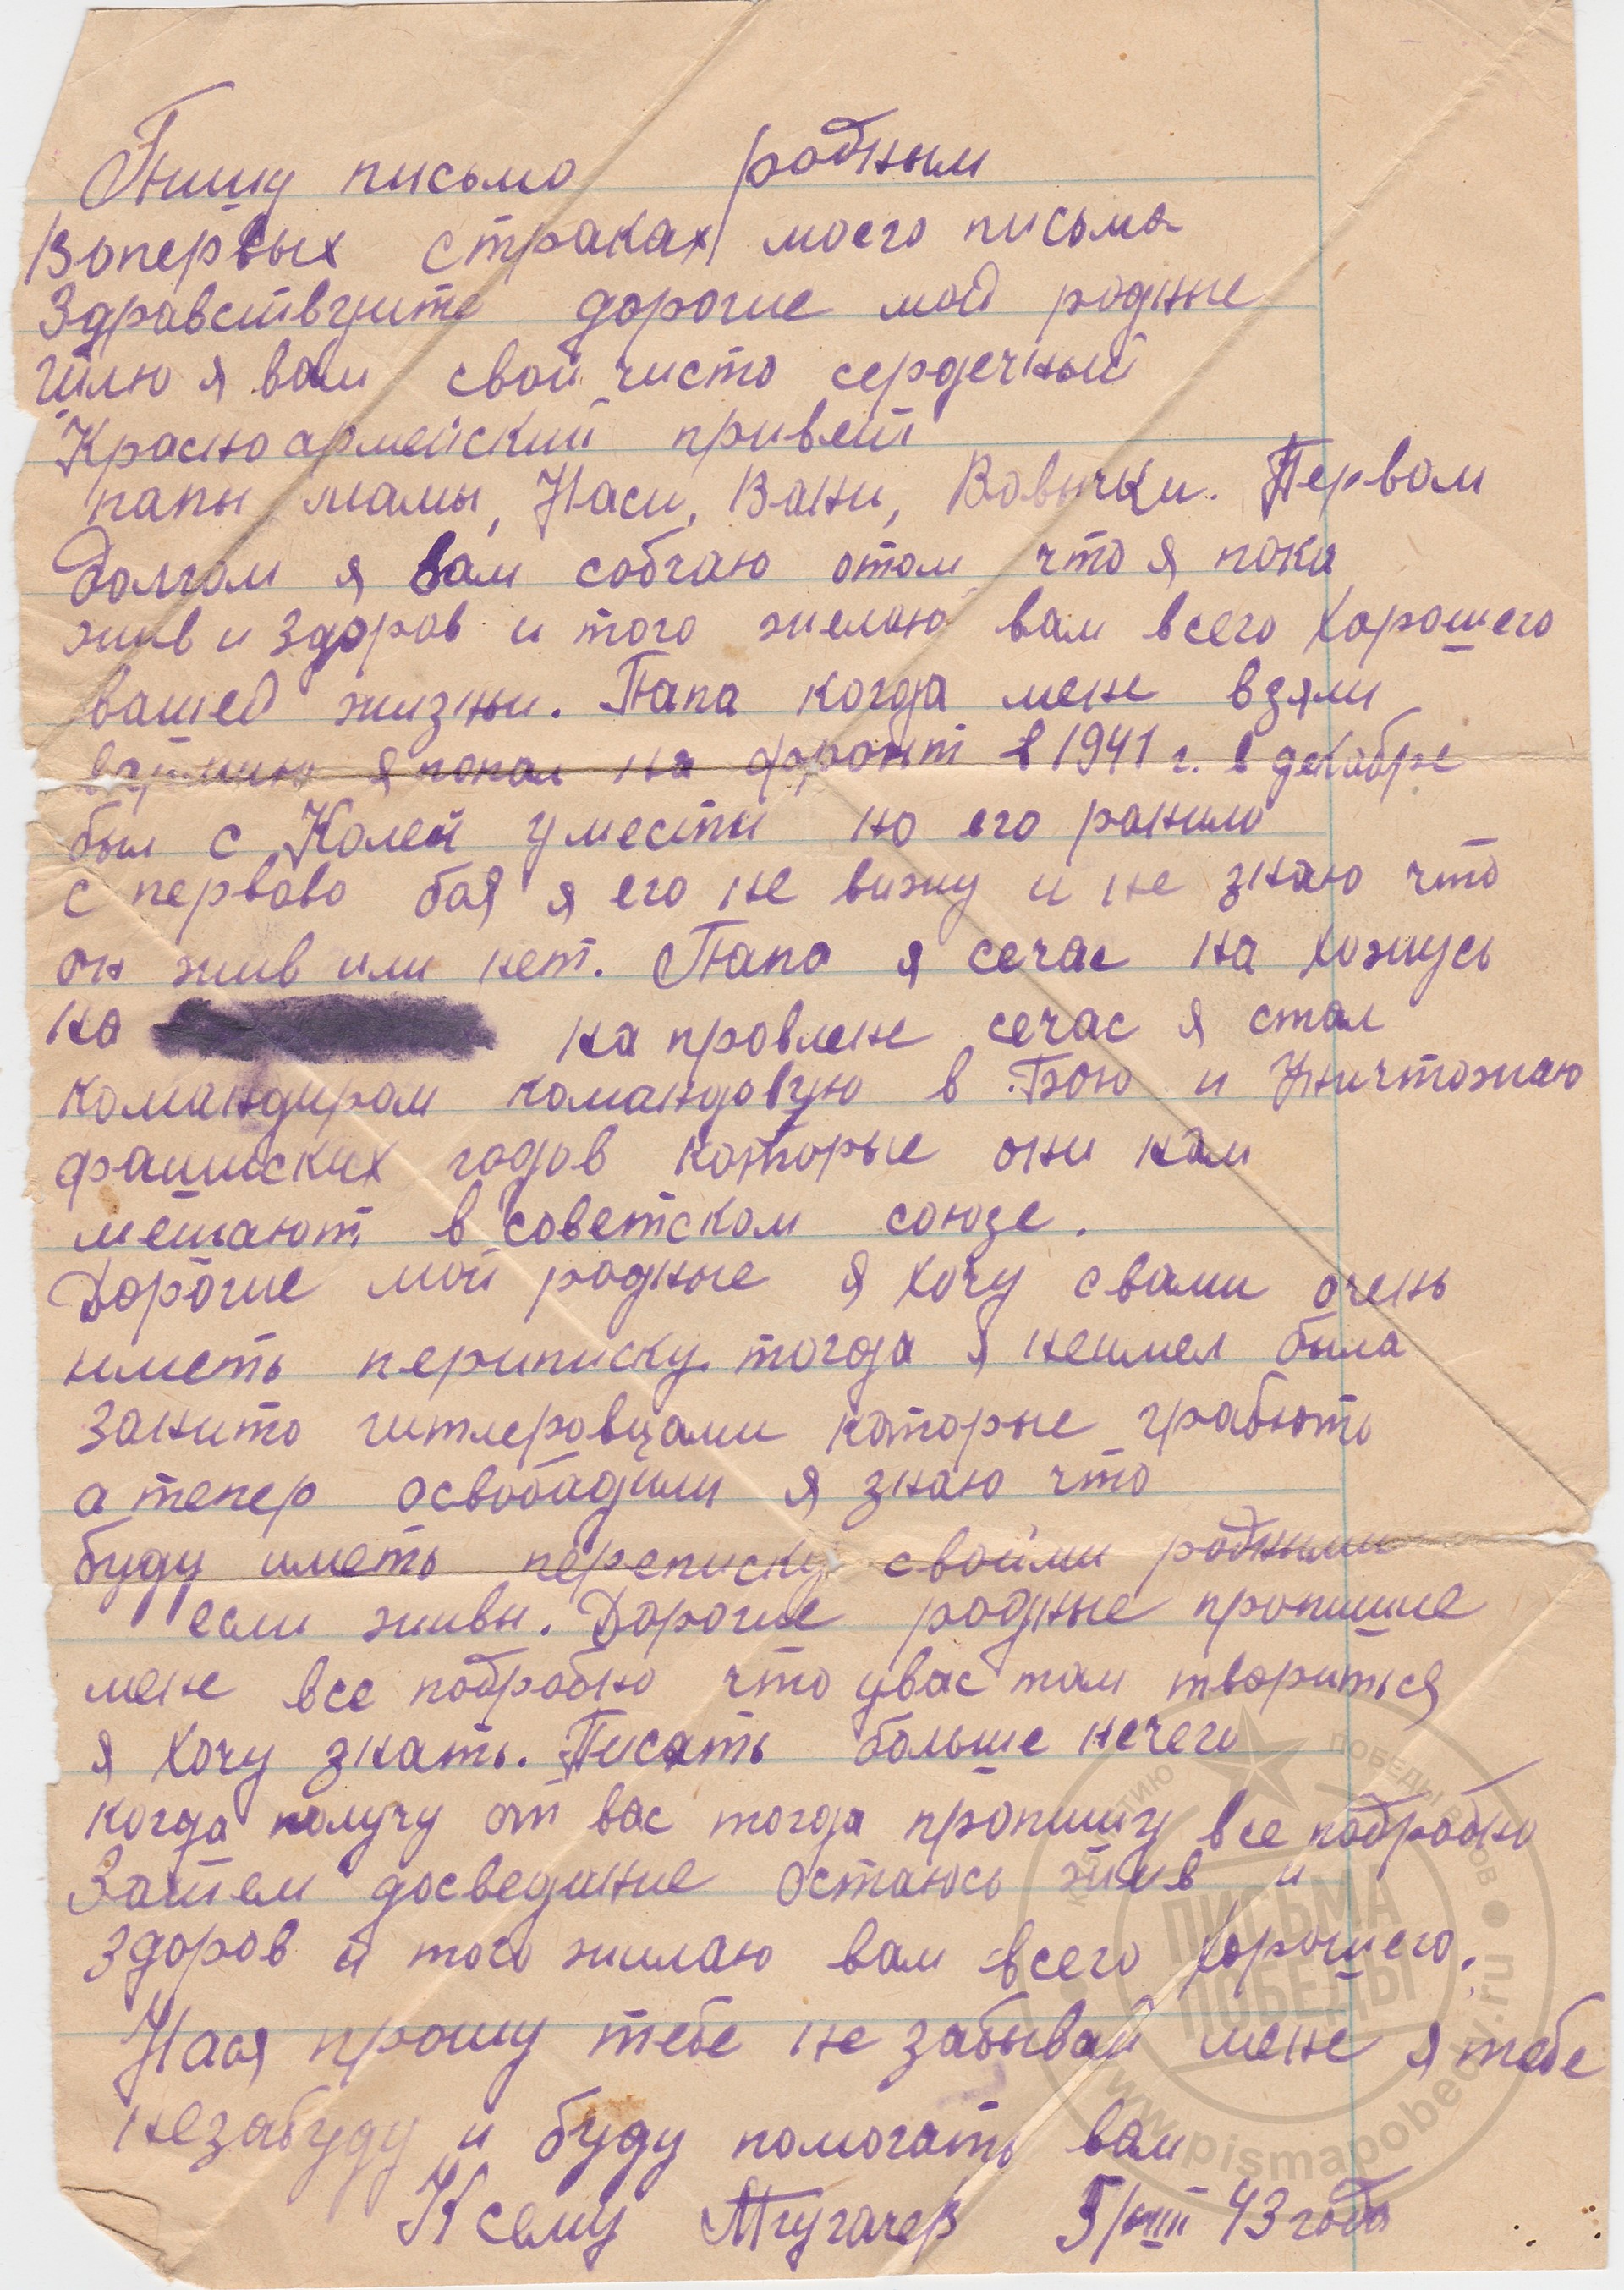 Пишу письмо родным
Вопервых страках моего письма
Здравствуите дорогие мой родные
шлю я вам свой чисто сердечный
Красноармейский привет
папы мамы, Наси, Вани, Вовычки. Первом
долгом я вам собчаю отом что я пока
жив и здоров и того желаю вам всего хорошего
вашей жизны. Папа когда мене взяли
вармию я попал на фронт в 1941 г. в декабре
был с Колей умести но его ранило
с первово боя я его не вижу и не знаю что
он жив или нет. Папа я сечас на хожусь
на на провлене сечас я стал
командиром командовую в Бою и Уничтожаю
фашиских годов которые они нам
мешают в советском союзе.
Дорогие мои родные я хочу свами очень
иметь периписку тогда я неимел была
занито гитлеровцами которые грабють
а тепер освобадили я знаю что
буду иметь переписку своими родными
если живы. Дорогие родные пропишие
мене все подробно что увас там твориться
я хочу знать. Писать больше нечего
когда получу от вас тогда пропишу все подробно
Затем досведание остаюсь жив и
здоров и того жилаю вам всего хорошего.
Нася прошу тебе не забывай мене я тебе
незабуду и буду помогать вам
К сему Мгугачер 5/VIII 43 года
ПОБЕДЫ
ПИСЬМА
ПОБЕДЫ
www.pismapobedy.ru